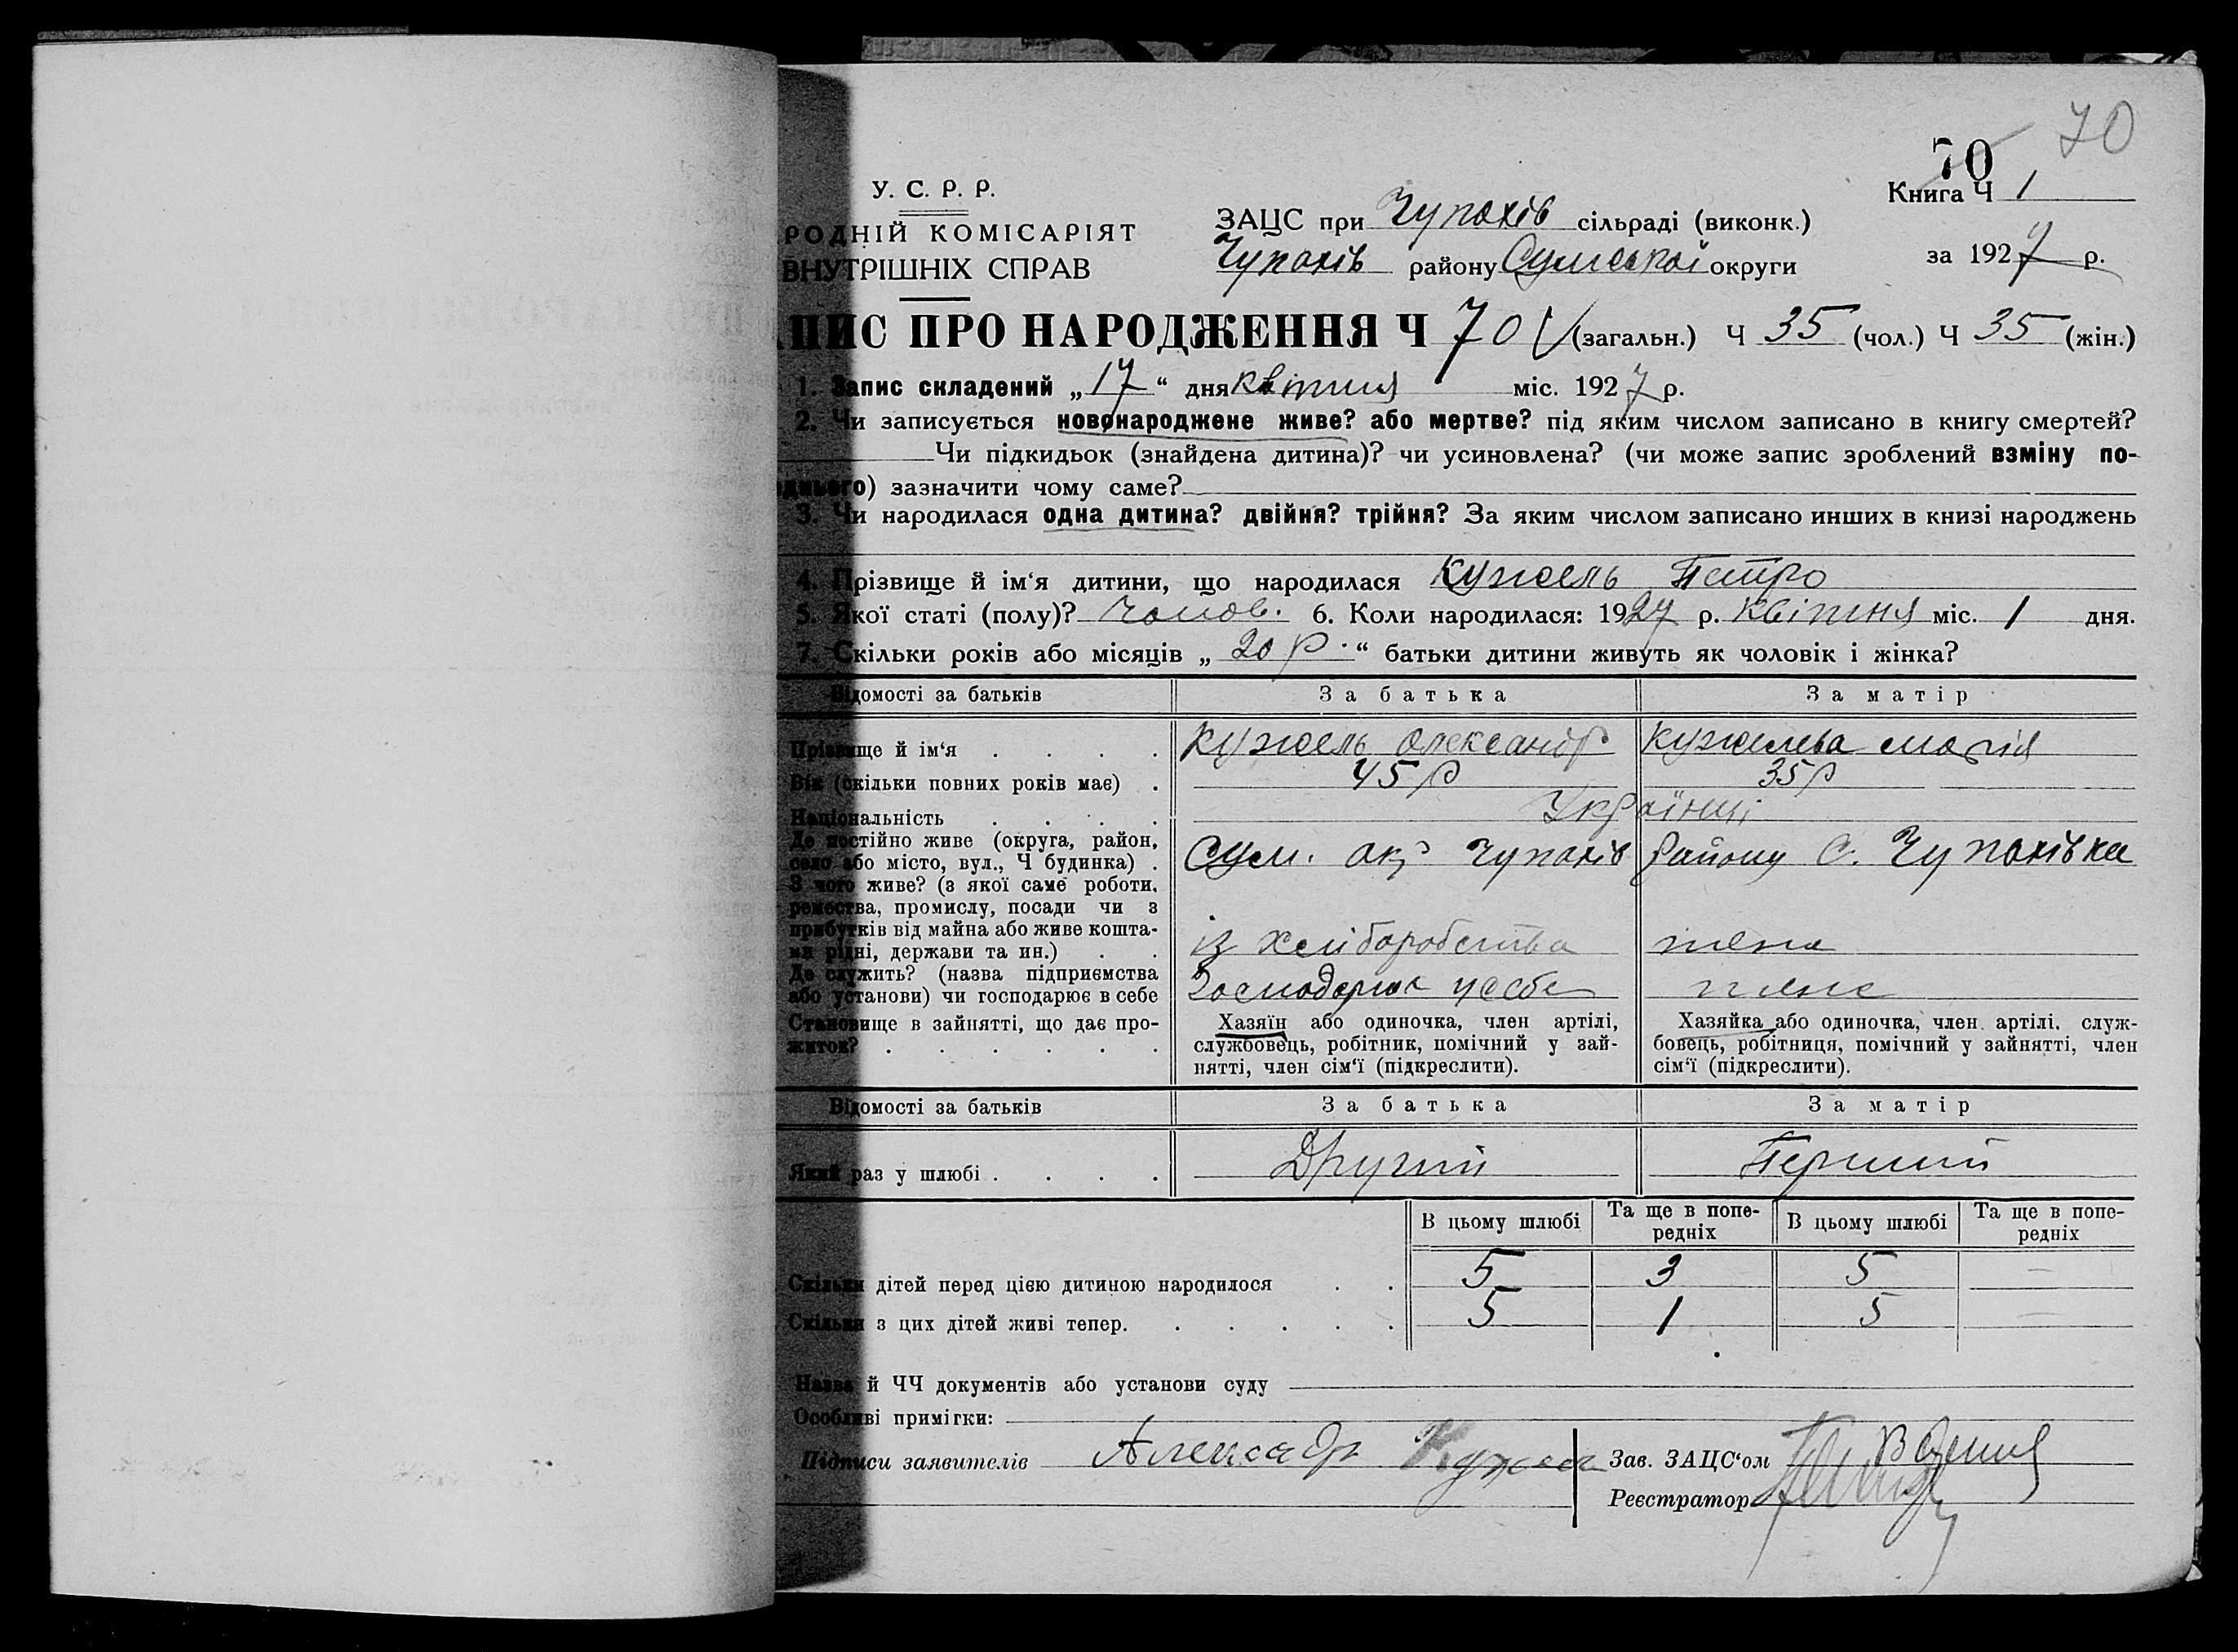 70
70
Книга Ч 1
У. С. Р. Р.
РОДНІЙ КОМІСАРІЯТ
ВНУТРІШНІХ СПРАВ
ЗАЦС при Чупахів сільраді (виконк.)
Чупахів району Сумської округи
за 1927 р.
ПИС ПРО НАРОДЖЕННЯ Ч 70 (загальн.) Ч 35 (чол.) Ч 35 (жін.)
1. Запис складений „ 17 “ дня квітня міс. 1927 р.
2. Чи записується новонароджене живе? або мертве? під яким числом записано в книгу смертей?
Чи підкидьок (знайдена дитина)? чи усиновлена? (чи може запис зроблений взміну по-
днього) зазначити чому саме?
3. Чи народилася одна дитина? двійня? трійня? За яким числом записано инших в книзі народжень
4. Прізвище й ім‘я дитини, що народилася Кужель Петро
5. Якої статі (полу)? Чолов. 6. Коли народилася: 1927 р. Квітня міс. 1 дня.
7. Скільки років або місяців „ 20 р. “ батьки дитини живуть як чоловік і жінка?
Відомості за батьків За батька За матір
Прізвище й ім‘я . . . . Кужель Олександр Кужелева Марія
Вік (скільки повних років має) . 45 р 35 р
Національність . . . . Українці
Де постійно живе (округа, район,
село або місто, вул., Ч будинка) . Сум. окр Чупахів району С. Чупахівка
З чого живе? (з якої саме роботи,
ремества, промислу, посади чи з
прибутків від майна або живе кошта-
ми рідні, держави та ин.) . . із хліборобства жена
Де служить? (назва підприємства
або установи) чи господарює в себе Господарює у себе жене
Становище в зайнятті, що дає про-
житок? . . . . . .
Хазяїн або одиночка, член артілі,
службовець, робітник, помічний у зай-
нятті, член сім‘ї (підкреслити).
Хазяйка або одиночка, член артілі, служ-
бовець, робітниця, помічний у зайнятті, член
сім‘ї (підкреслити).
Відомості за батьків За батька За матір
Який раз у шлюбі . . . . Другий Перший
В цьому шлюбі Та ще в попе-
редніх В цьому шлюбі Та ще в попе-
редніх
Скільки дітей перед цією дитиною народилося . . 5 3 5 —
Скільки з цих дітей живі тепер. . . . . . 5 1 5 —
Назва й ЧЧ документів або установи суду
Особливі примітки:
Підписи заявителів Алексадр Кужель Зав. ЗАЦС‘ом
Реєстратор